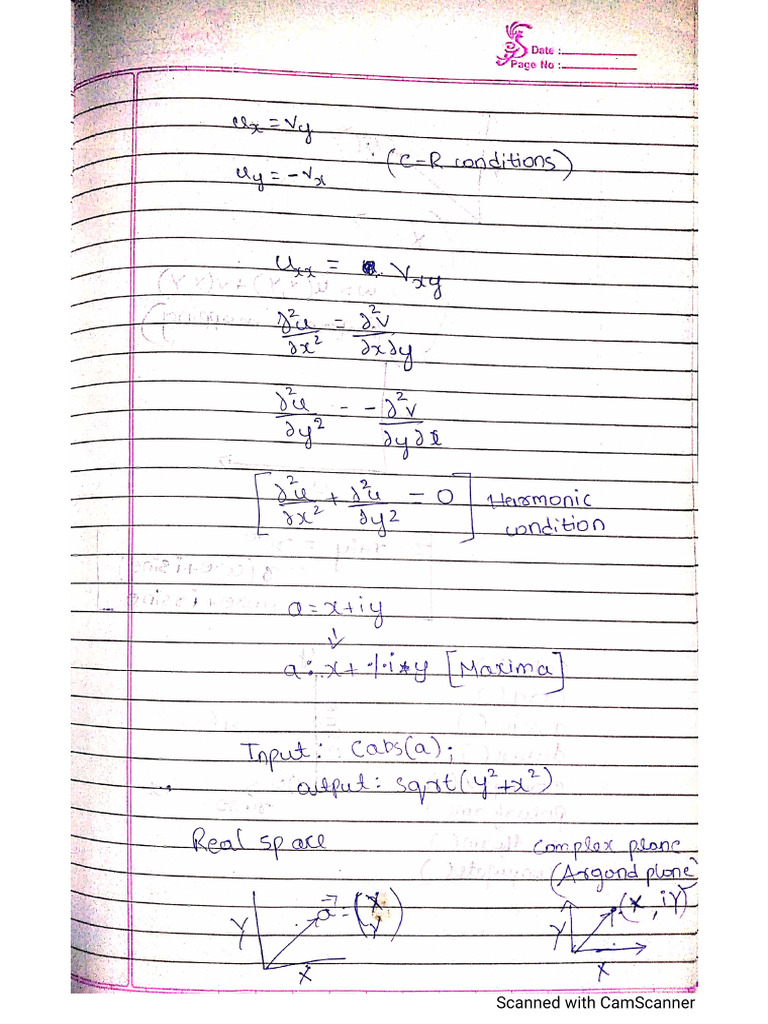 Date :
Page No :
uₓ = v_y
(C-R conditions)
u_y = -vₓ
uₓₓ = v_xy
∂²u/∂x² = ∂²v/∂x∂y
∂²u/∂y² - -∂²v/∂y∂x
[∂²u/∂x² + ∂²u/∂y² = 0] Harmonic
condition
a = x+iy
↓
a: x + %i*y [Maxima]
Input: cabs(a);
output: sqrt(y²+x²)
Real space
complex plane
(Argand plane)
Y
a⃗ = (X
Y)
X
Y
(X, iY)
X
Scanned with CamScanner